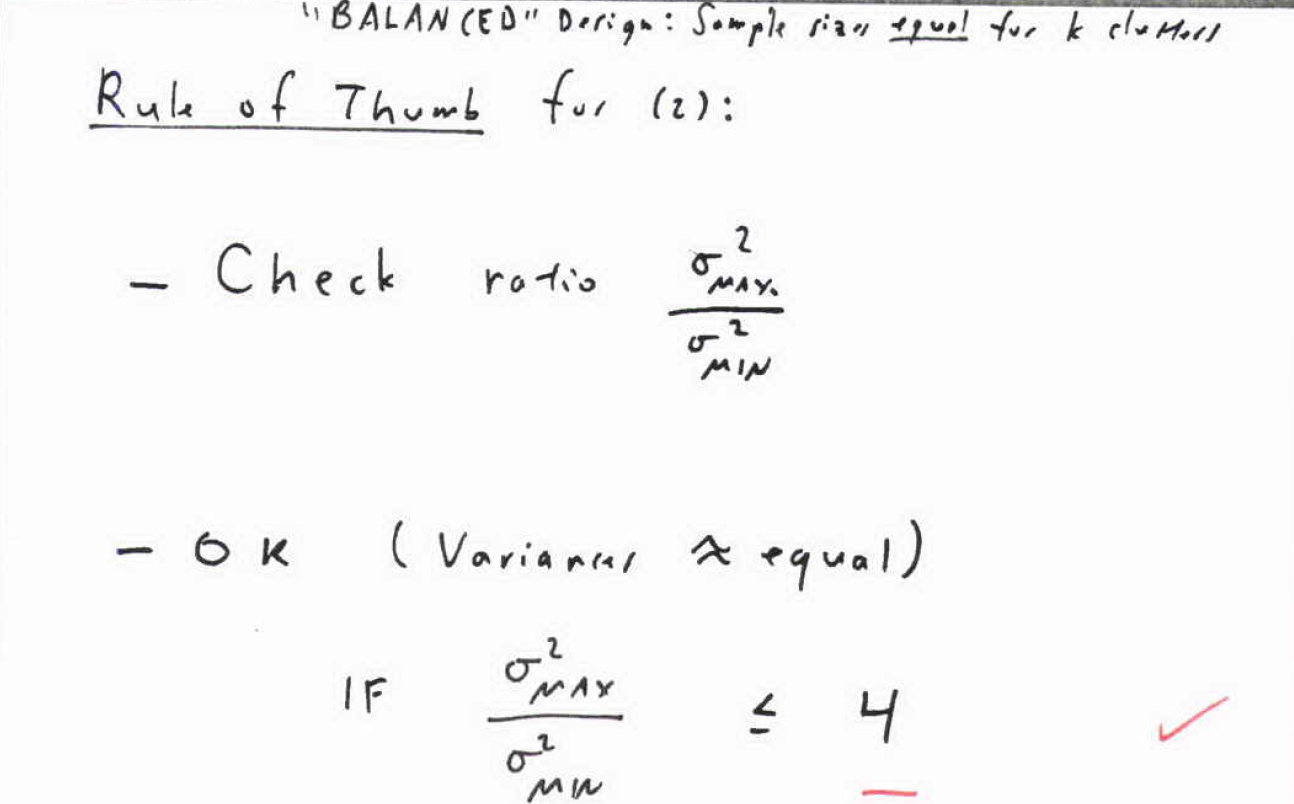 "BALANCED" Design: Sample sizes equal for k clusters
Rule of Thumb for (2):
- Check ratio σ²MAX. / σ²MIN
- OK (Variances ≈ equal)
IF σ²MAX / σ²MIN ≤ 4 ✓